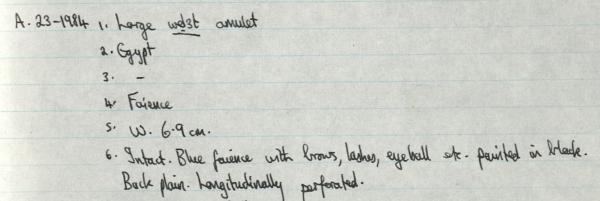 A. 23-1984 1. Large wd3t amulet
2. Egypt
3. -
4. Faience
5. W. 6.9 cm.
6. Intact. Blue faience with brows, lashes, eyeball etc. painted in black.
Back plain. Longitudinally perforated.